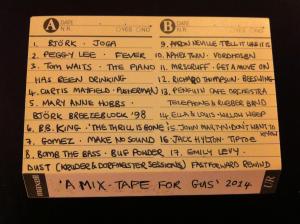 A DATE
N.R. ○YES ○NO
B DATE
N.R. ○YES ○NO
1. BJÖRK. JOGA
2. PEGGY LEE. FEVER
3. TOM WAITS. THE PIANO
HAS BEEN DRINKING
4. CURTIS MAYFIELD.
5. MARY ANNE HOBBS.
BJÖRK BREEZEBLOCK '98
6. B.B. KING. 'THE THRILL IS GONE'
7. GOMEZ. MAKE NO SOUND
8. BOMB THE BASS. BUG POWDER
DUST (KRUDER & DORFMEISTER SESSIONS)
9. AARON NEVILLE. TELL IT LIKE IT IS
10. APHEX TWIN. VORDHOSBN
11. MR. SCRUFF. GET A MOVE ON
12. RICHARD THOMPSON. BEESWING
13. PENGUIN CAFE ORCHESTRA
TELEPHONE & RUBBER BAND
14. ELLA & LOUIS. WILLOW WEEP
15. JOHN MARTYN. DON'T WANT TO KNOW
16. JACK HYLTON. TIPTOE
17. EMILY LEVY.
FASTFORWARD REWIND
maxell
'A MIX-TAPE FOR GUS' 2014.
UR